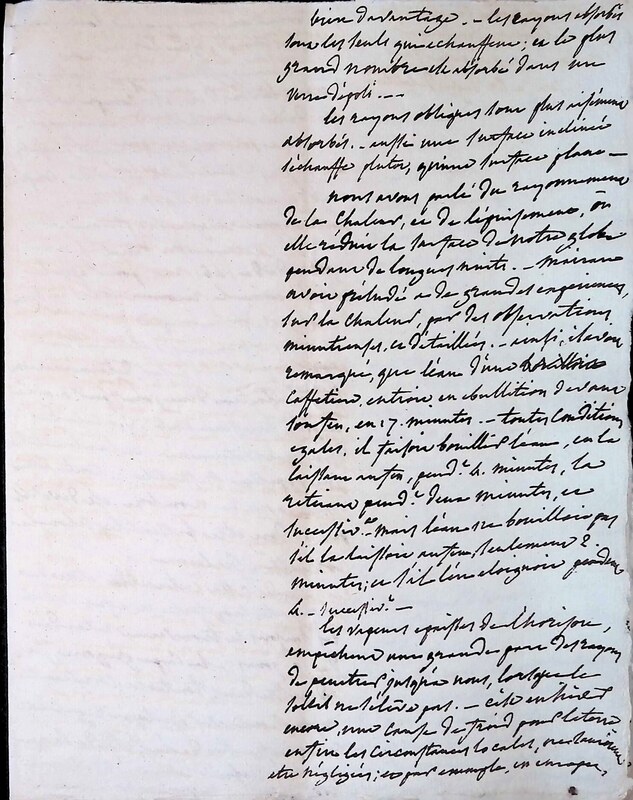 bien davantage. - les rayons absorbés
sont les seuls qui echauffent; et le plus
grand nombre est absorbé dans un
verre dépoli. --
les rayons obliques sont plus aisément
absorbés. - aussi une surface inclinée
s'échauffe plutot, qu'une surface plane -
nous avons parlé du rayonnement
de la chaleur, et de l'épuisement, où
elle réduit la surface de notre globe
pendant de longues nuits. - Mairan
avoit préludé a de grandes experiences,
sur la chaleur, par des observations
minutieuses, et détaillées. - ainsi, il avoit
remarqué, que l'eau d'une bouilloire
caffetiere entroit en ebullition devant
son feu, en 17. minutes. - toutes conditions
egales, il faisoit bouillir l'eau, en la
laissant au feu, pend.t 4. minutes, la
retirant pend.t deux minutes, et
successiv.t - mais l'eau ne bouilloit pas
s'il la laissoit au feu, seulement 2.
minutes, et s'il l'en eloignoit pendant
4. - successiv.t -
les vapeurs epaisses de l'horison,
empechent une grande partie des rayons
de penetrer jusqu'a nous, lorsque le
soleil ne s'élève pas. - c'est en hiver
encore, une cause de froid pour la terre
enfin les circonstances locales, ne sauroient
etre négligées; et par exemple, en